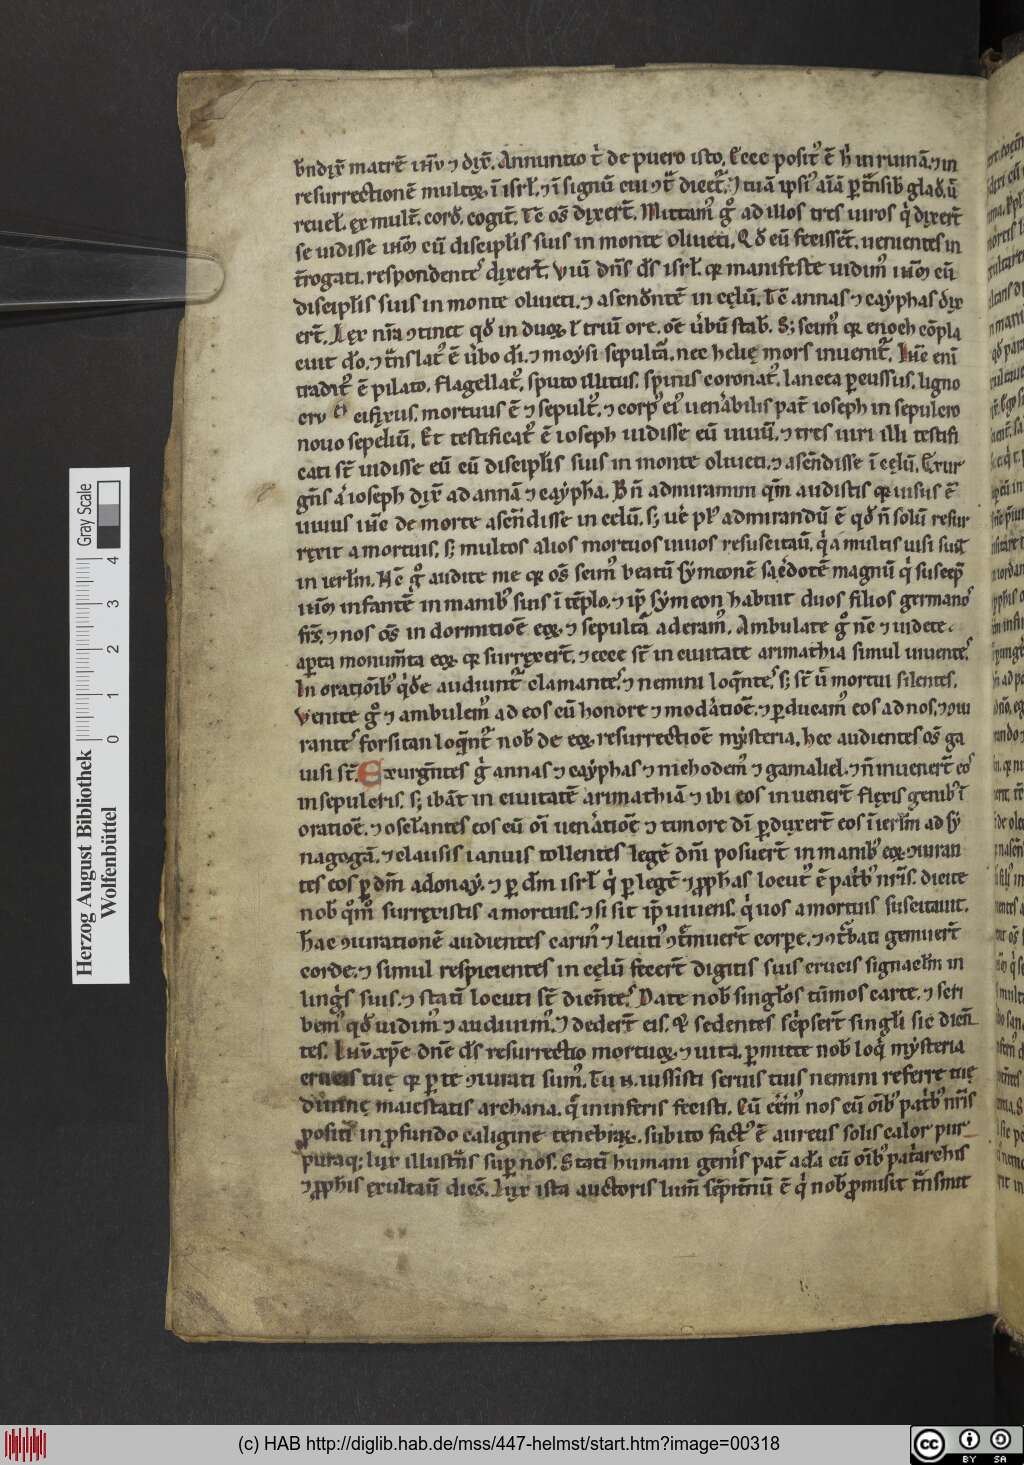 bndix̄ matrē ih̄u ⁊ dix̄. Annuntio t̾ de puero isto. Ecce posit᾽ ē h̾ in ruinā. ⁊ in
resurrectionē multoꝝ. ī isrl̄. ⁊ ī signū cui
reuel̄. ex mult̄. cord̄. cogit̄. Tē os̄ dixer̄t. Mittam᾽ gͦ ad illos tres uiros q̾ dixer̄t
se uidisse ih̄m eū discipl̄is suis in monte oliueti. Qd̄ eū fecissēt. uenientes in
t̄rogati. respondente᾽ dixer̄t. Viū dn̄s ds̄ isrl̄. qꝛ manifeste uidim᾽ ih̄m eū
discipl̄is suis in monte oliueti. ⁊ ascendentē in cęlū. Tē annas ⁊ cayphas dix
er̄t. Lex nr̄a ꝯtinet qd̄ in duoꝝ ł triū ore. oē úbū stab̄. S; scim᾽ qꝛ enoch cōpla
cuit do. ⁊ tn̄slat᾽ ē úbo di. ⁊ moysi sepultā. nec helię mors inuenit̄. Ih̄e enī
tradit᾽ ē pilato. flagellat᾽. sputo illitus. spinis coronat᾽. lancea ꝑcussus. ligno
cru cifixus. mortuus ē ⁊ sepult᾽. ⁊ corp᾽ ei᾽ uenábilis pat̄ ioseph in sepulcro
nouo sepeliū. Et testificat᾽ ē ioseph uidisse eū uiuū. ⁊ tres uiri illi testifi
cati st̄ uidisse eū eū discipl̄is suis in monte oliueti. ⁊ ascēdisse ī cęlū. Exur
gn̄s ioseph dix̄ ad annā ⁊ cayphā. Bn̄ admiramini qm̄ audistis qꝛ uisus ē
uiuus ih̄e de morte ascēdisse in cęlū. s; uē pl᾽ admirandū ē qd̄ n̄ solū resur
rexit a mortuis. s; multos alios mortuos uiuos resuscitau. q̾ a multis uisi sūt
in ierl̄m. Nē gͦ audite me qꝛ os̄ scim᾽ beatū symeonē sacédotē magnū q̾ suscep̄
ih̄m infantē in manib᾽ suis ī tēplo. ⁊ ip̄ symeon habuit duos filios germano᾽
fr̄s. ⁊ nos os̄ in dormitiōē eoꝝ. ⁊ sepultā aderam᾽. Ambulate gͦ nē ⁊ uidete
aꝑta monum̄ta eoꝝ. qꝛ surrexer̄t. ⁊ ecce st̄ in ciuitate arimathia simul uiuente᾽.
In oratiōib᾽ q̾dē audiunt̄ clamante᾽. ⁊ nemini loqn̄te᾽. s; st̄ ū mortui silentes.
Venite gͦ ⁊ ambulem᾽ ad eos cū honore ⁊ modátiōē. ⁊ ꝑducam᾽ eos ad nos. ⁊ ꝯiu
rante᾽ forsitan loqn̄t᾽ nob̄ de eoꝝ resurrectiōē mysteria. hec audientes os̄ ga
uisi st̄. Exurgn̄tes g̾ annas ⁊ cayphas ⁊ nichodem᾽ ⁊ gamaliel. ⁊ n̄ inuener̄t eos
in sepulcris. s; ibāt in ciuitatē arimathiā ⁊ ibi eos inuener̄t flexis genib᾽ ī
oratiōē. ⁊ oscl̄antes eos cū oī uenátiōē ⁊ timore dī ꝑduxer̄t eos ī ierl̄m ad sy
nagogā. ⁊ clausis ianuis tollentes legē dn̄i posuer̄t in manib᾽ eoꝝ. ꝯiuran
tes eos ꝑ dm̄ adonay. ⁊ ꝑ dm̄ isrl̄ q̾ ꝑ legē ⁊ ꝓphas locut᾽ ē patb᾽ nr̄is. dicite
nob̄ qͦmͦ surrexistis a mortuis. ⁊ si sit ip̄ uiuens. q̾ uos a mortuis suscitauit.
hac ꝯiurationē audientes carin᾽ ⁊ leuti᾽ ꝯt̄muer̄t corꝑe. ⁊ ꝯt̾bati gemuer̄t
corde. ⁊ simul respicientes in cęlū fecer̄t digitis suis crucis signacl̄m in
ling̾s suis. ⁊ statī locuti st̄ dicēte᾽. Date nob̄ singl̄os tūmos carte. ⁊ scri
bem᾽ qd̄ uidim᾽ ⁊ audiuim᾽. ⁊ deder̄t eis. Et sedentes sc̾pser̄t singl̄i sic dicēn
tes. Ih̄u xp̄e dn̄e ds̄ resurrectio mortuoꝝ. ⁊ uita. ꝑmitte nob̄ loq̾ mysteria
crucis tuę qꝛ ꝑ te ꝯiurati sum᾽. Tu n̄ iussisti seruis tuis nemini referre tuę
diuinę maiestatis archana. q̄ in inferis fecisti. Cū eēm᾽ nos cū oīb᾽ patb᾽ nr̄is
positi in ꝓfundo caligine tenebraꝝ. subito fact᾽ ē aureus solis calor pur
puraq; lux illustn̄s suꝑ nos. Statī humani gen̾is pat̄ adā cū oīb᾽ patarchis
⁊ ꝓphis exultaū dicēs. Lux ista auctoris lum̄ sēpit̄nū ē q̾ nob̄ ꝓmisit tn̄smitt
Herzog August Bibliothek
Wolfenbüttel
0 1 2 3 4
Gray Scale
(c) HAB http://diglib.hab.de/mss/447-helmst/start.htm?image=00318
cc BY SA